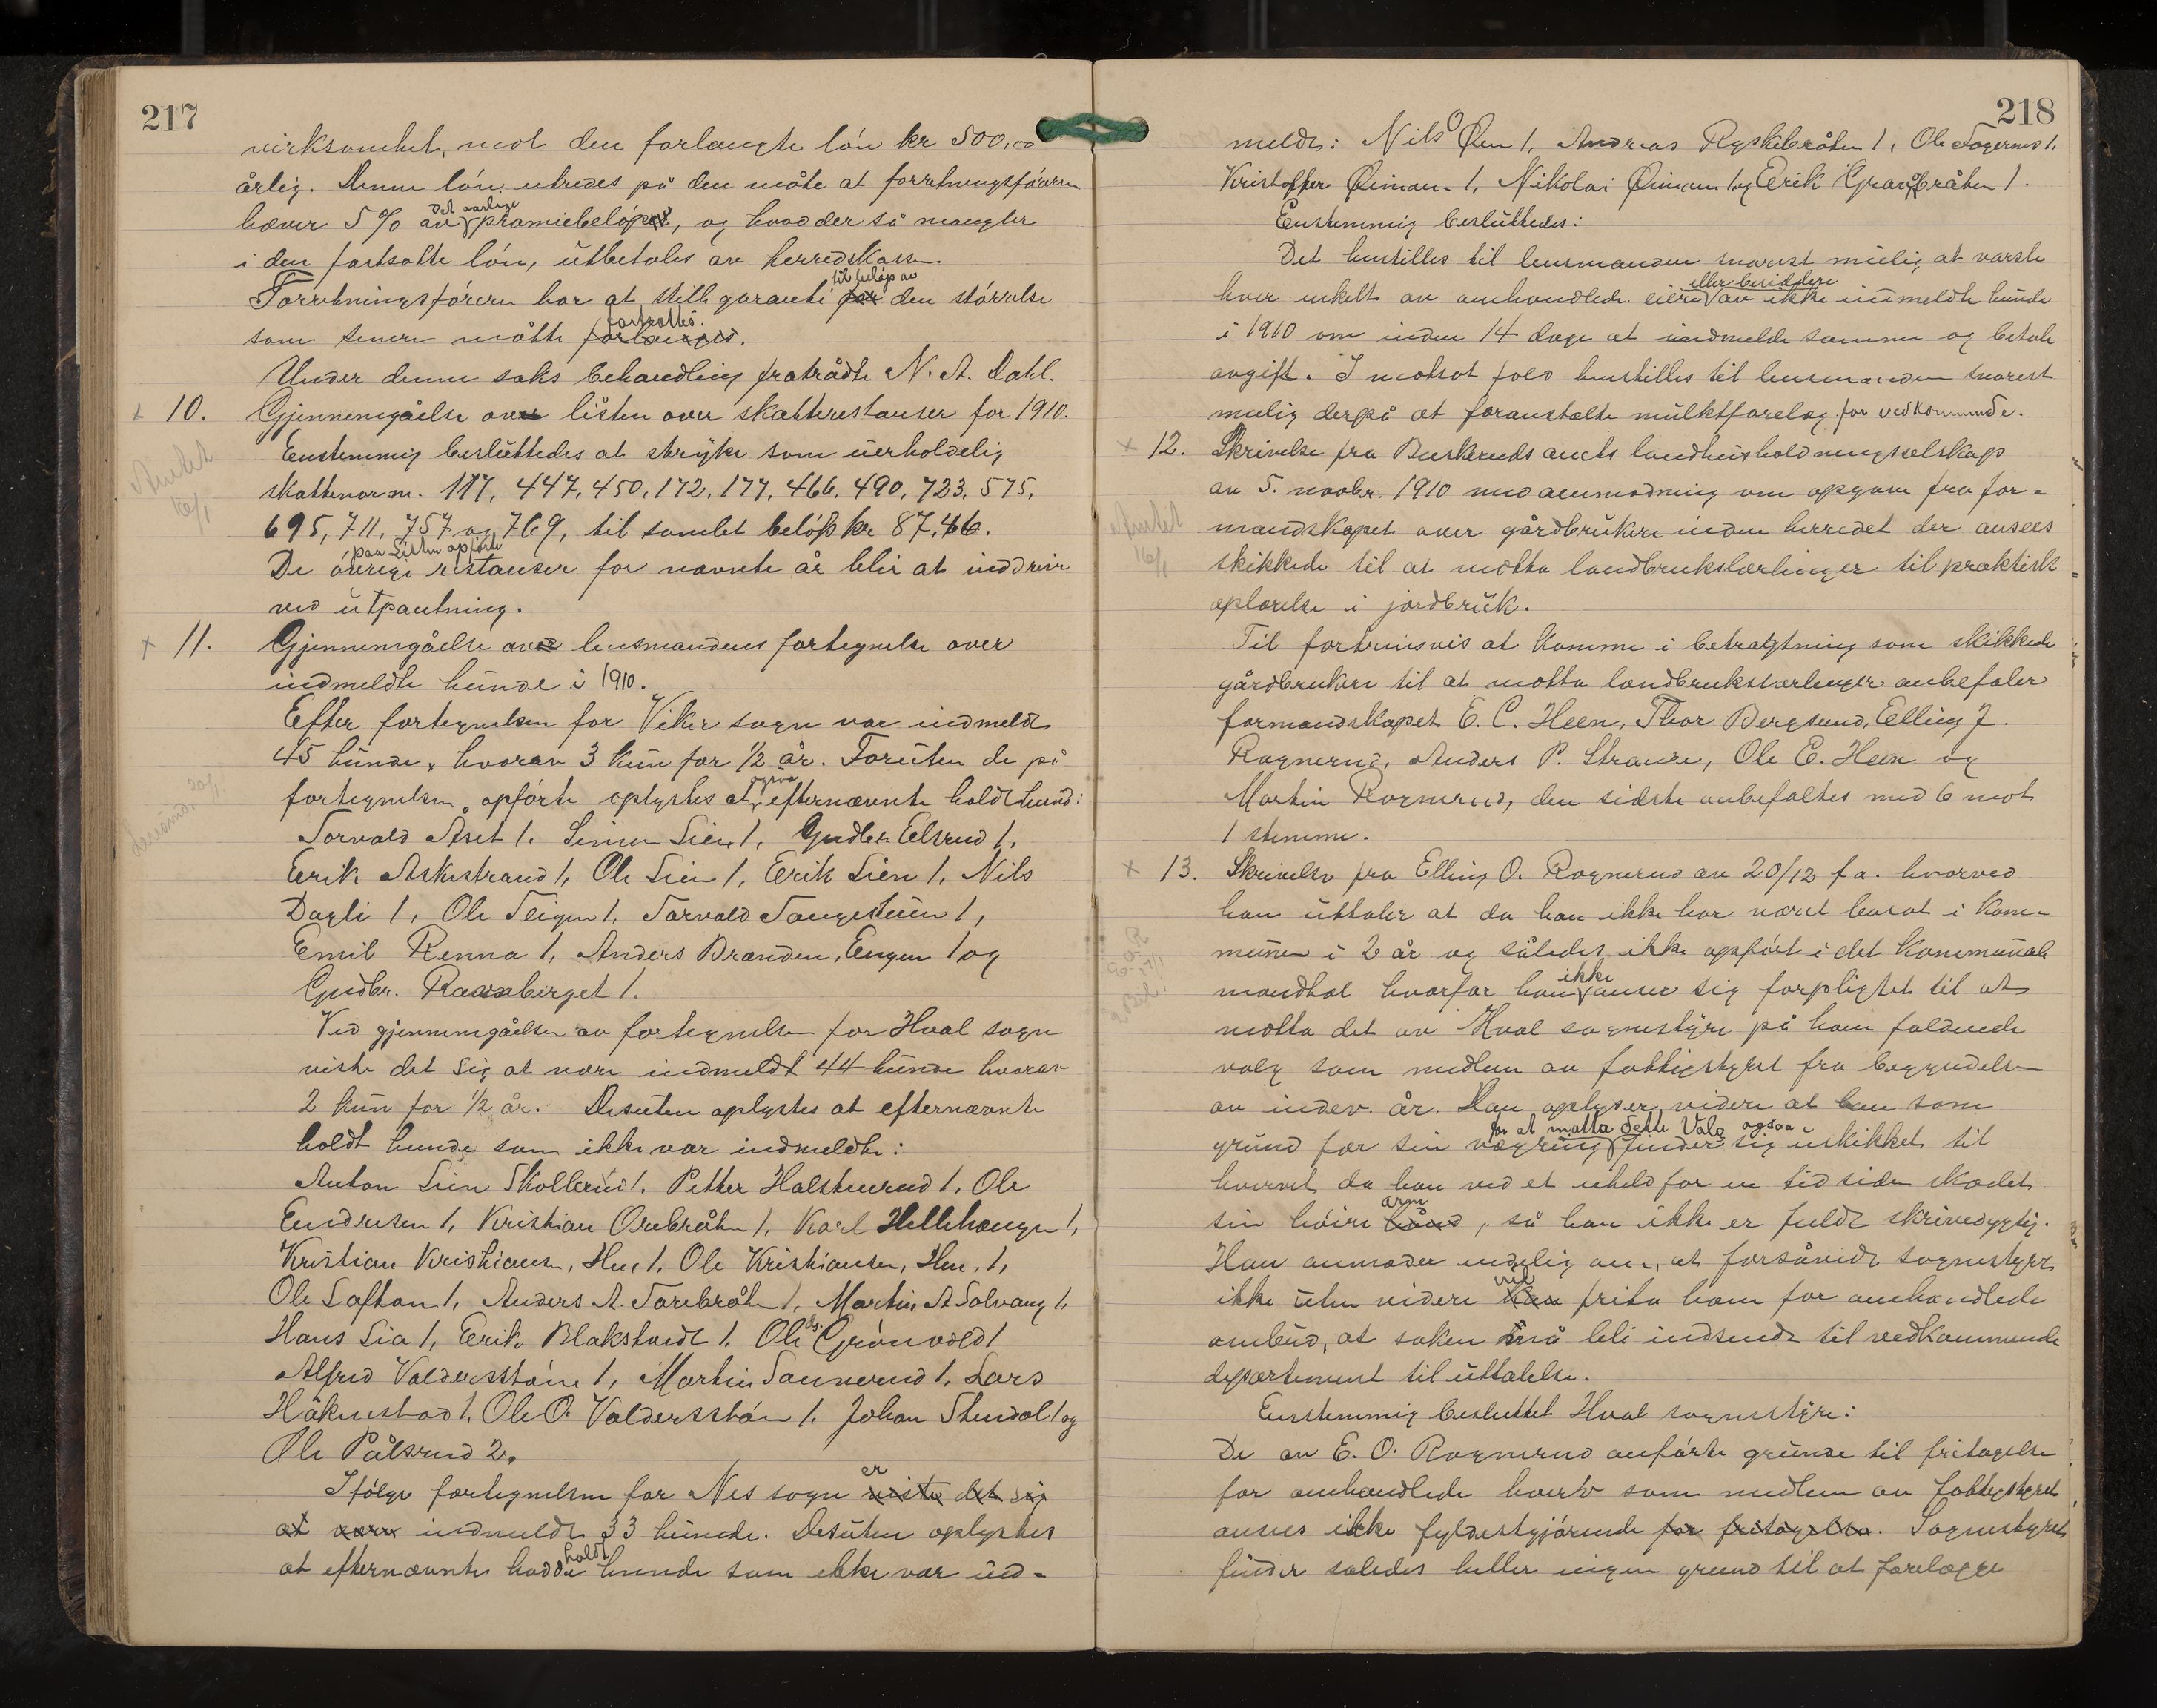 217
virksomhet, mot den forlangte lön kr 500,00
årlig. Denne lön utredes på den måte at forretningsföreren
hæver 5% av det aarlige præmiebelöp, og hvad der så mangler
i den fastsatte lön, utbetales av herredskassen.
Forretningsföreren har at stille garanti for til belöp av den störrelse
som senere måtte forlanges fastsættes.
Under denne saks behandling fratrådte N. A. Dahl.
x 10. Gjennemgåelse over listen over skatterestanser for 1910.
Enstemmig besluttedes at stryke som uerholdelig
Anmeldt
16/1
skattenor nr. 117, 447, 450, 172, 177, 466, 490, 723, 575,
695, 711, 757 og 769, til samlet belöp kr 87,46.
De övrige paa Listen opförte restanser for nævnte år blir at inddrive
ved utpantning.
x 11. Gjennemgåelse over lensmandens fortegnelse over
indmeldte hunde i 1910.
Efter fortegnelsen for Viker sogn var indmeldt
45 hunde, hvorav 3 kun for 1/2 år. Foruten de på
fortegnelsen opförte oplystes at ogsaa efternævnte holdt hund:
Torvald Åset 1. Simen Lien 1, Gudbr. Eelsrud 1,
Erik Askestrand 1, Ole Lien 1, Erik Lien 1, Nils
Dagli 1, Ole Teigen 1, Torvald Tangesteen 1,
Emil Renna 1, Anders Branden, Engen 1 og
Gudbr. Ravnberget 1.
Ved gjennemgåelsen av fortegnelsen for Hval sogn
viste det sig at være indmeldt 44 hunde hvorav
2 kun for 1/2 år. Desuten oplystes at efternævnte
holdt hunde som ikke var indmeldte:
Anton Lien Skollerud 1. Petter Halsteinrud 1. Ole
Endresen 1, Kristian Orebråten 1, Karl Hellehaugen 1,
Kristian Kristiansen, Hen 1, Ole Kristiansen, Hen, 1,
Ole Saftan 1, Anders A. Torebråten 1, Martin A Solvang 1,
Hans Lia 1, Erik Blakstvedt 1. Ole Grönvold 1
Alfred Valdersstöen 1, Martin Sannerud 1, Lars
Håkenstad 1, Ole O. Valdersstöen 1. Johan Stendal 1 og
Ole Pålsrud 2.
Ifölge fortegnelsen for Nes sogn er viste det sig
at være indmeldt 33 hunde. Desuten oplystes
at efternævnte hadde holdt hunde som ikke var ind-
218
meldt: Nils O Öen 1, Andreas Ryskebråten 1, Ole Fagernes 1,
Kristoffer Öiman 1, Nikolai Öiman 1 og Erik Granbråten 1.
Enstemmig besluttedes:
Det henstilles til lensmanden snarest mulig at varsle
hver enkelt av omhandlede eiere eller besiddere av ikke indmeldte hunde
i 1910 om inden 14 dage at indmelde samme og betale
avgift. I motsat fald henstilles til lensmanden snarest
mulig derpå at foranstalte mulktforelæg for vedkommende.
x 12. Skrivelse fra Buskeruds amts landhusholdningsselskap
av 5. novbr. 1910 med anmodning om opgave fra for-
Anmeldt
16/1
mandskapet over gårdbrukere inden herredet der ansees
skikkede til at motta landbrukslærlinger til praktisk
oplærelse i jordbruk.
Til fortrinsvis at komme i betragtning som skikkede
gårdbrukere til at motta landbrukslærlinger anbefaler
formandskapet E. C. Heen, Thor Bergsund, Elling J.
Rognerud, Anders P. Strande, Ole E. Heen og
Martin Rognerud, den sidste anbefaltes med 6 mot
1 stemme.
x 13. Skrivelse fra Elling O. Rognerud av 20/12 f.a. hvorved
han uttaler at da han ikke har været bosat i kom-
munen i 2 år og således ikke opfört i det kommunale
mandtal hvorfor han ikke anser sig forpligtet til at
motta det av Hval sognestyre på ham faldende
valg som medlem av fattigstyret fra begyndelsen
av indev. år. Han oplyser videre at han som
grund for sin vægring for at motta dette Valg finder sig ogsaa uskikket til
hvervet, da han ved et uheld for en tid siden skadet
sin höire hånd arm, så han ikke er fuldt skrivedygtig.
Han anmoder endelig om, at forsåvidt sognestyret
ikke uten videre kan vil frita ham for omhandlede
ombud, at saken må bli indsendt til vedkommende
departement til uttalelse.
Enstemmig besluttet Hval sognestyre:
De av E. O. Rognerud anförte grunde til fritagelse
for omhandlede hverv som medlem av fattigstyret
ansees ikke fyldestgjörende for fritagelse. Sognestyret
finder således heller ingen grund til at forelægge